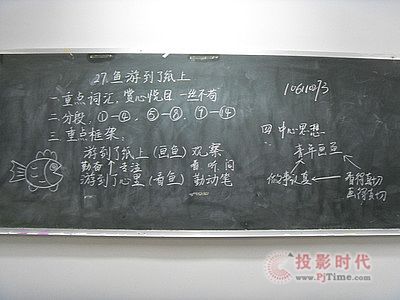 27.鱼游到了纸上
一重点词汇,赏心悦目 一丝不苟
二分段,①—④,⑤—⑧,⑨—⑭
三重点框架、
游到了纸上(画鱼)观察
勤奋 专注 看 听 问
游到了心里(看鱼)勤动笔
四 中心思想
青年画鱼
做事认真
看得真切
画得真切
投影时代
www.PjTime.com